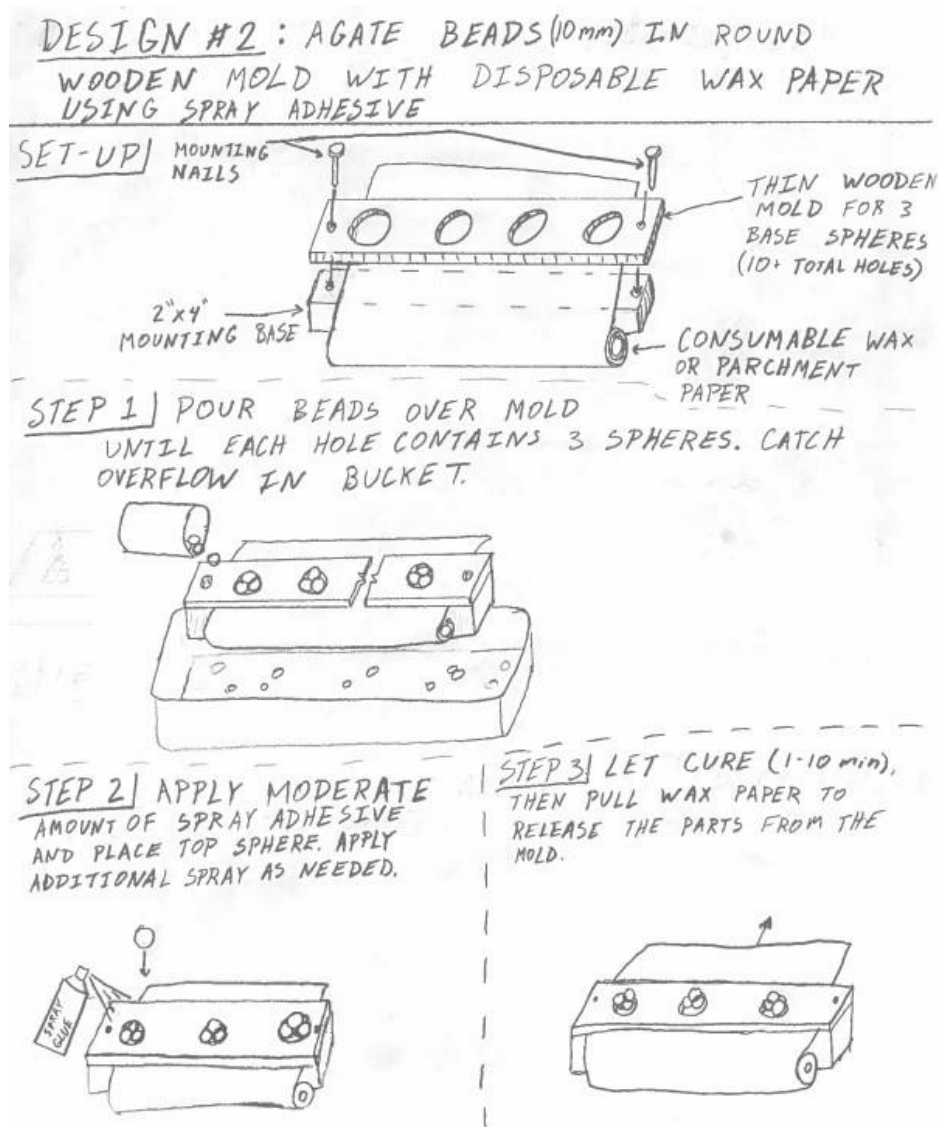 DESIGN #2: AGATE BEADS (10mm) IN ROUND
WOODEN MOLD WITH DISPOSABLE WAX PAPER
USING SPRAY ADHESIVE
SET-UP
MOUNTING
NAILS
THIN WOODEN
MOLD FOR 3
BASE SPHERES
(10+ TOTAL HOLES)
2"x4"
MOUNTING BASE
CONSUMABLE WAX
OR PARCHMENT
PAPER
STEP 1 POUR BEADS OVER MOLD
UNTIL EACH HOLE CONTAINS 3 SPHERES. CATCH
OVERFLOW IN BUCKET.
STEP 2 APPLY MODERATE
AMOUNT OF SPRAY ADHESIVE
AND PLACE TOP SPHERE. APPLY
ADDITIONAL SPRAY AS NEEDED.
SPRAY
GLUE
STEP 3 LET CURE (1-10 min),
THEN PULL WAX PAPER TO
RELEASE THE PARTS FROM THE
MOLD.